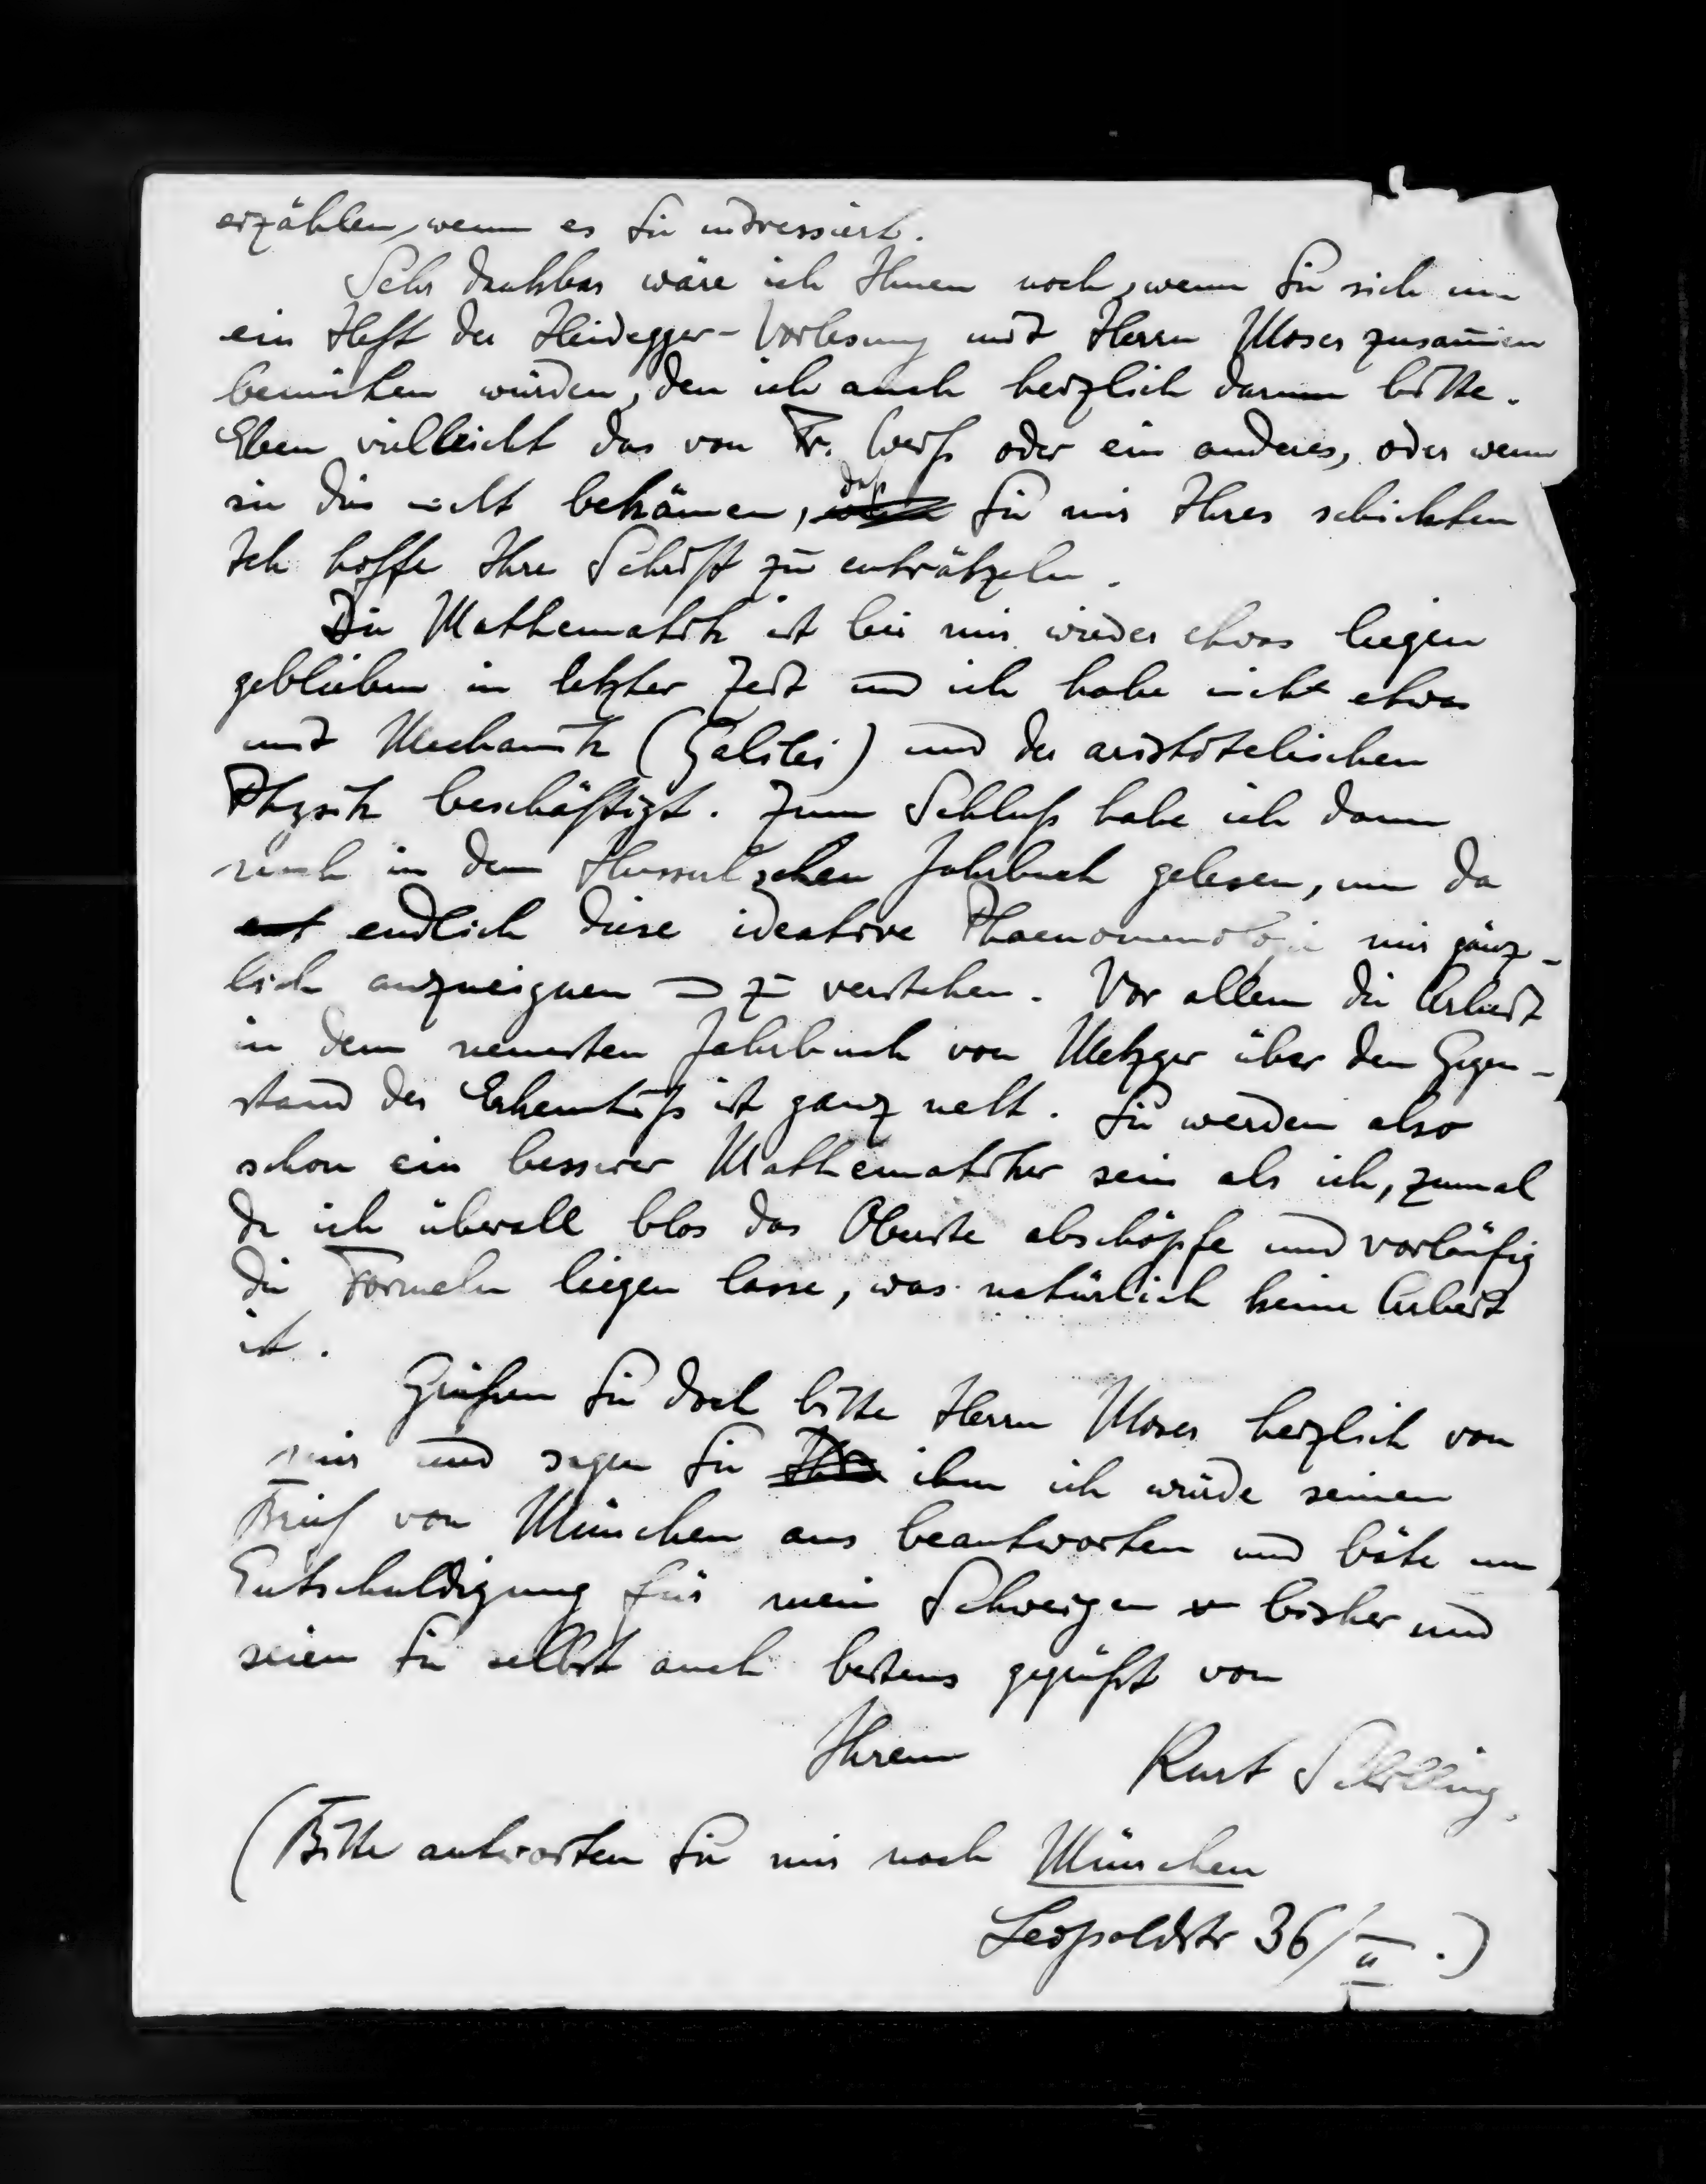 erzählen, wenn es Sie intressiert.
Sehr dankbar wäre ich Ihnen noch, wenn Sie sich um
ein Heft der Heidegger-Vorlesung mit Herrn Moser zusammen
bemühen würden, den ich auch herzlich darum bitte.
Eben vielleicht das von Fr. Weiß oder ein anderes, oder wenn
sie dies nicht bekämen, daß Sie mir Ihres schickten
Ich hoffe Ihre Schrift zu enträtzeln.
Die Mathematik ist bei mir wieder etwas liegen
geblieben in letzter Zeit und ich habe mich etwas
mit Mechanik (Galilei) und der aristotelischen
Physik beschäftigt. Zum Schluß habe ich dann
noch in dem Husserlschen Jahrbuch gelesen, um da
endlich diese ideative Phaenomenologie mir gänz-
lich anzueignen und zu verstehen. Vor allem die Arbeit
in dem neuesten Jahrbuch von Metzger über den Gegen-
stand der Erkenntniß ist ganz nett. Sie werden also
schon ein besserer Mathematiker sein als ich, zumal
da ich überall blos das Oberste abschöpfe und vorläufig
die Formeln liegen lasse, was natürlich keine Arbeit
ist.
Grüßen Sie doch bitte Herrn Moser herzlich von
mir und sagen Sie ihm ich würde seinen
Brief von München aus beantworten und bäte um
Entschuldigung für mein Schweigen bisher und
seien Sie selbst auch bestens gegrüßt von
Ihrem Kurt Schilling.
(Bitte antworten Sie mir nach München
Leopoldstr 36/II.)